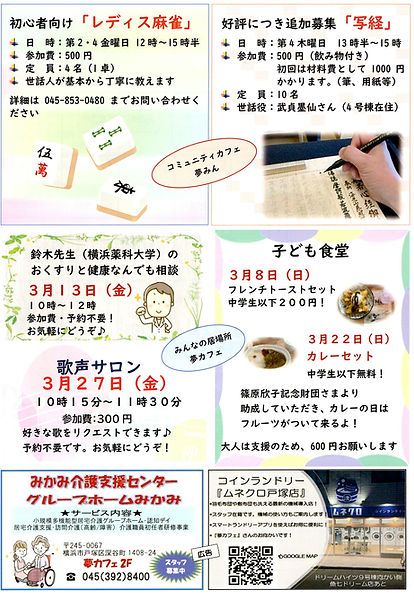 初心者向け「レディス麻雀」
日　時：第2・4金曜日 12時～15時半
参加費：500円
定　員：4名（1卓）
世話人が基本から丁寧に教えます
詳細は 045-853-0480 までお問い合わせください
伍
萬
好評につき追加募集「写経」
日　時：第4木曜日　13時半～15時
参加費：500円（飲み物付き）
初回は材料費として 1000円
かかります。（筆、用紙等）
定　員：10名
世話役：武貞墨仙さん（4号棟在住）
コミュニティカフェ
夢みん
鈴木先生（横浜薬科大学）の
おくすりと健康なんでも相談
3月13日（金）
10時～12時
参加費・予約不要！
お気軽にどうぞ♪
歌声サロン
3月27日（金）
10時15分～11時30分
参加費:300円
好きな歌をリクエストできます♪
予約不要です。お気軽にどうぞ！
みんなの居場所
夢カフェ
子ども食堂
3月8日（日）
フレンチトーストセット
中学生以下200円！
3月22日（日）
カレーセット
中学生以下無料！
篠原欣子記念財団さまより
助成していただき、カレーの日は
フルーツがついて来るよ！
大人は支援のため、600円お願いします
みかみ介護支援センター
グループホームみかみ
★サービス内容★
小規模多機能型居宅介護グループホーム・認知デイ
居宅介護支援・訪問介護（高齢/障害）介護職員初任者研修事業
〒245-0067
横浜市戸塚区深谷町1408-24
夢カフェ2F
☎ 045(392)8400
スタッフ
募集中
広告
コインランドリー
『ムネクロ戸塚店』
スタッフ在籍です。機械の使い方もご案内します！
スマートランドリーアプリを使えばお得に便利に！
『夢カフェ』さんのお向かいです！
GOOGLE MAP
ムネクロ
ドリームハイツ9号棟向かい側
魚七ドリーム店あと